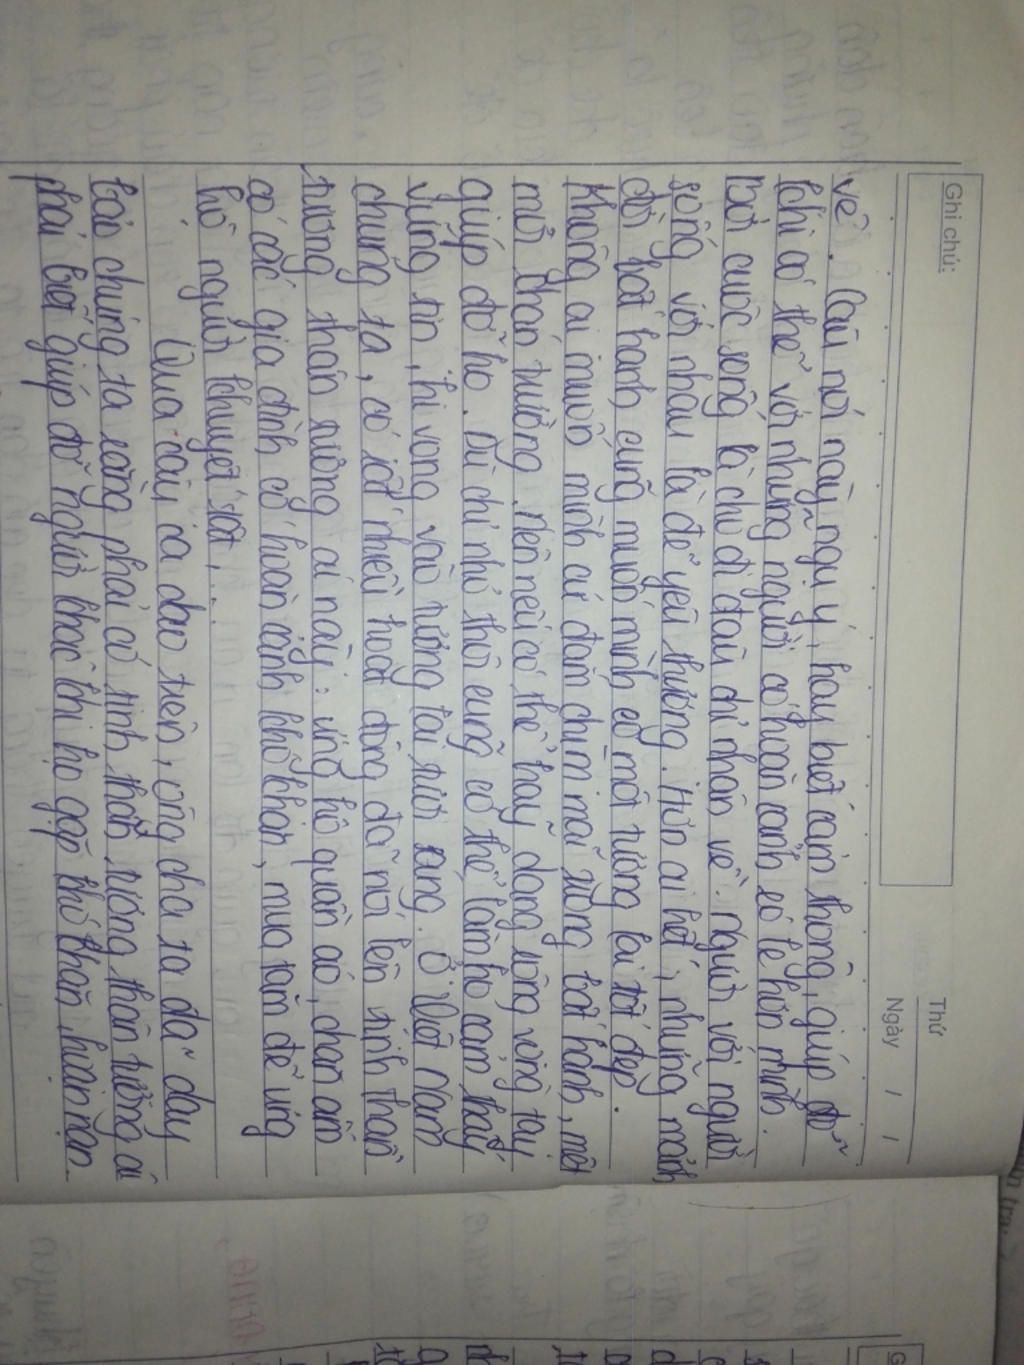 Ghi chú:
Thứ
Ngày / /
về. Câu nói này ngụ ý, hãy biết cảm thông, giúp đỡ
khi có thể với những người có hoàn cảnh éo le hơn mình.
Bởi cuộc sống là cho đi đâu chỉ nhận về. Người với người
sống với nhau là để yêu thương. Hơn ai hết, những mảnh
đời bất hạnh cũng muốn mình có một tương lai tốt đẹp.
Không ai muốn mình cứ đắm chìm mãi trong bất hạnh, một
mỏi thân thương. Nên nếu có thể hãy dang rộng vòng tay
giúp đỡ họ. Dù chỉ nhỏ thôi cũng có thể làm họ cảm thấy
vững tin, hi vọng vào tương lai tươi sáng. Ở Việt Nam
chúng ta, có rất nhiều hoạt động đã nói lên tinh thần
tương thân tương ái này: ủng hộ quần áo, chăn ấm
có các gia đình có hoàn cảnh khó khăn, mua tăm để ủng
hộ người khuyết tật,...
Qua câu ca dao trên, ông cha ta đã dạy
bảo chúng ta rằng phải có tinh thần tương thân tương ái
phải biết giúp đỡ người khác khi họ gặp khó khăn, hoạn nạn.